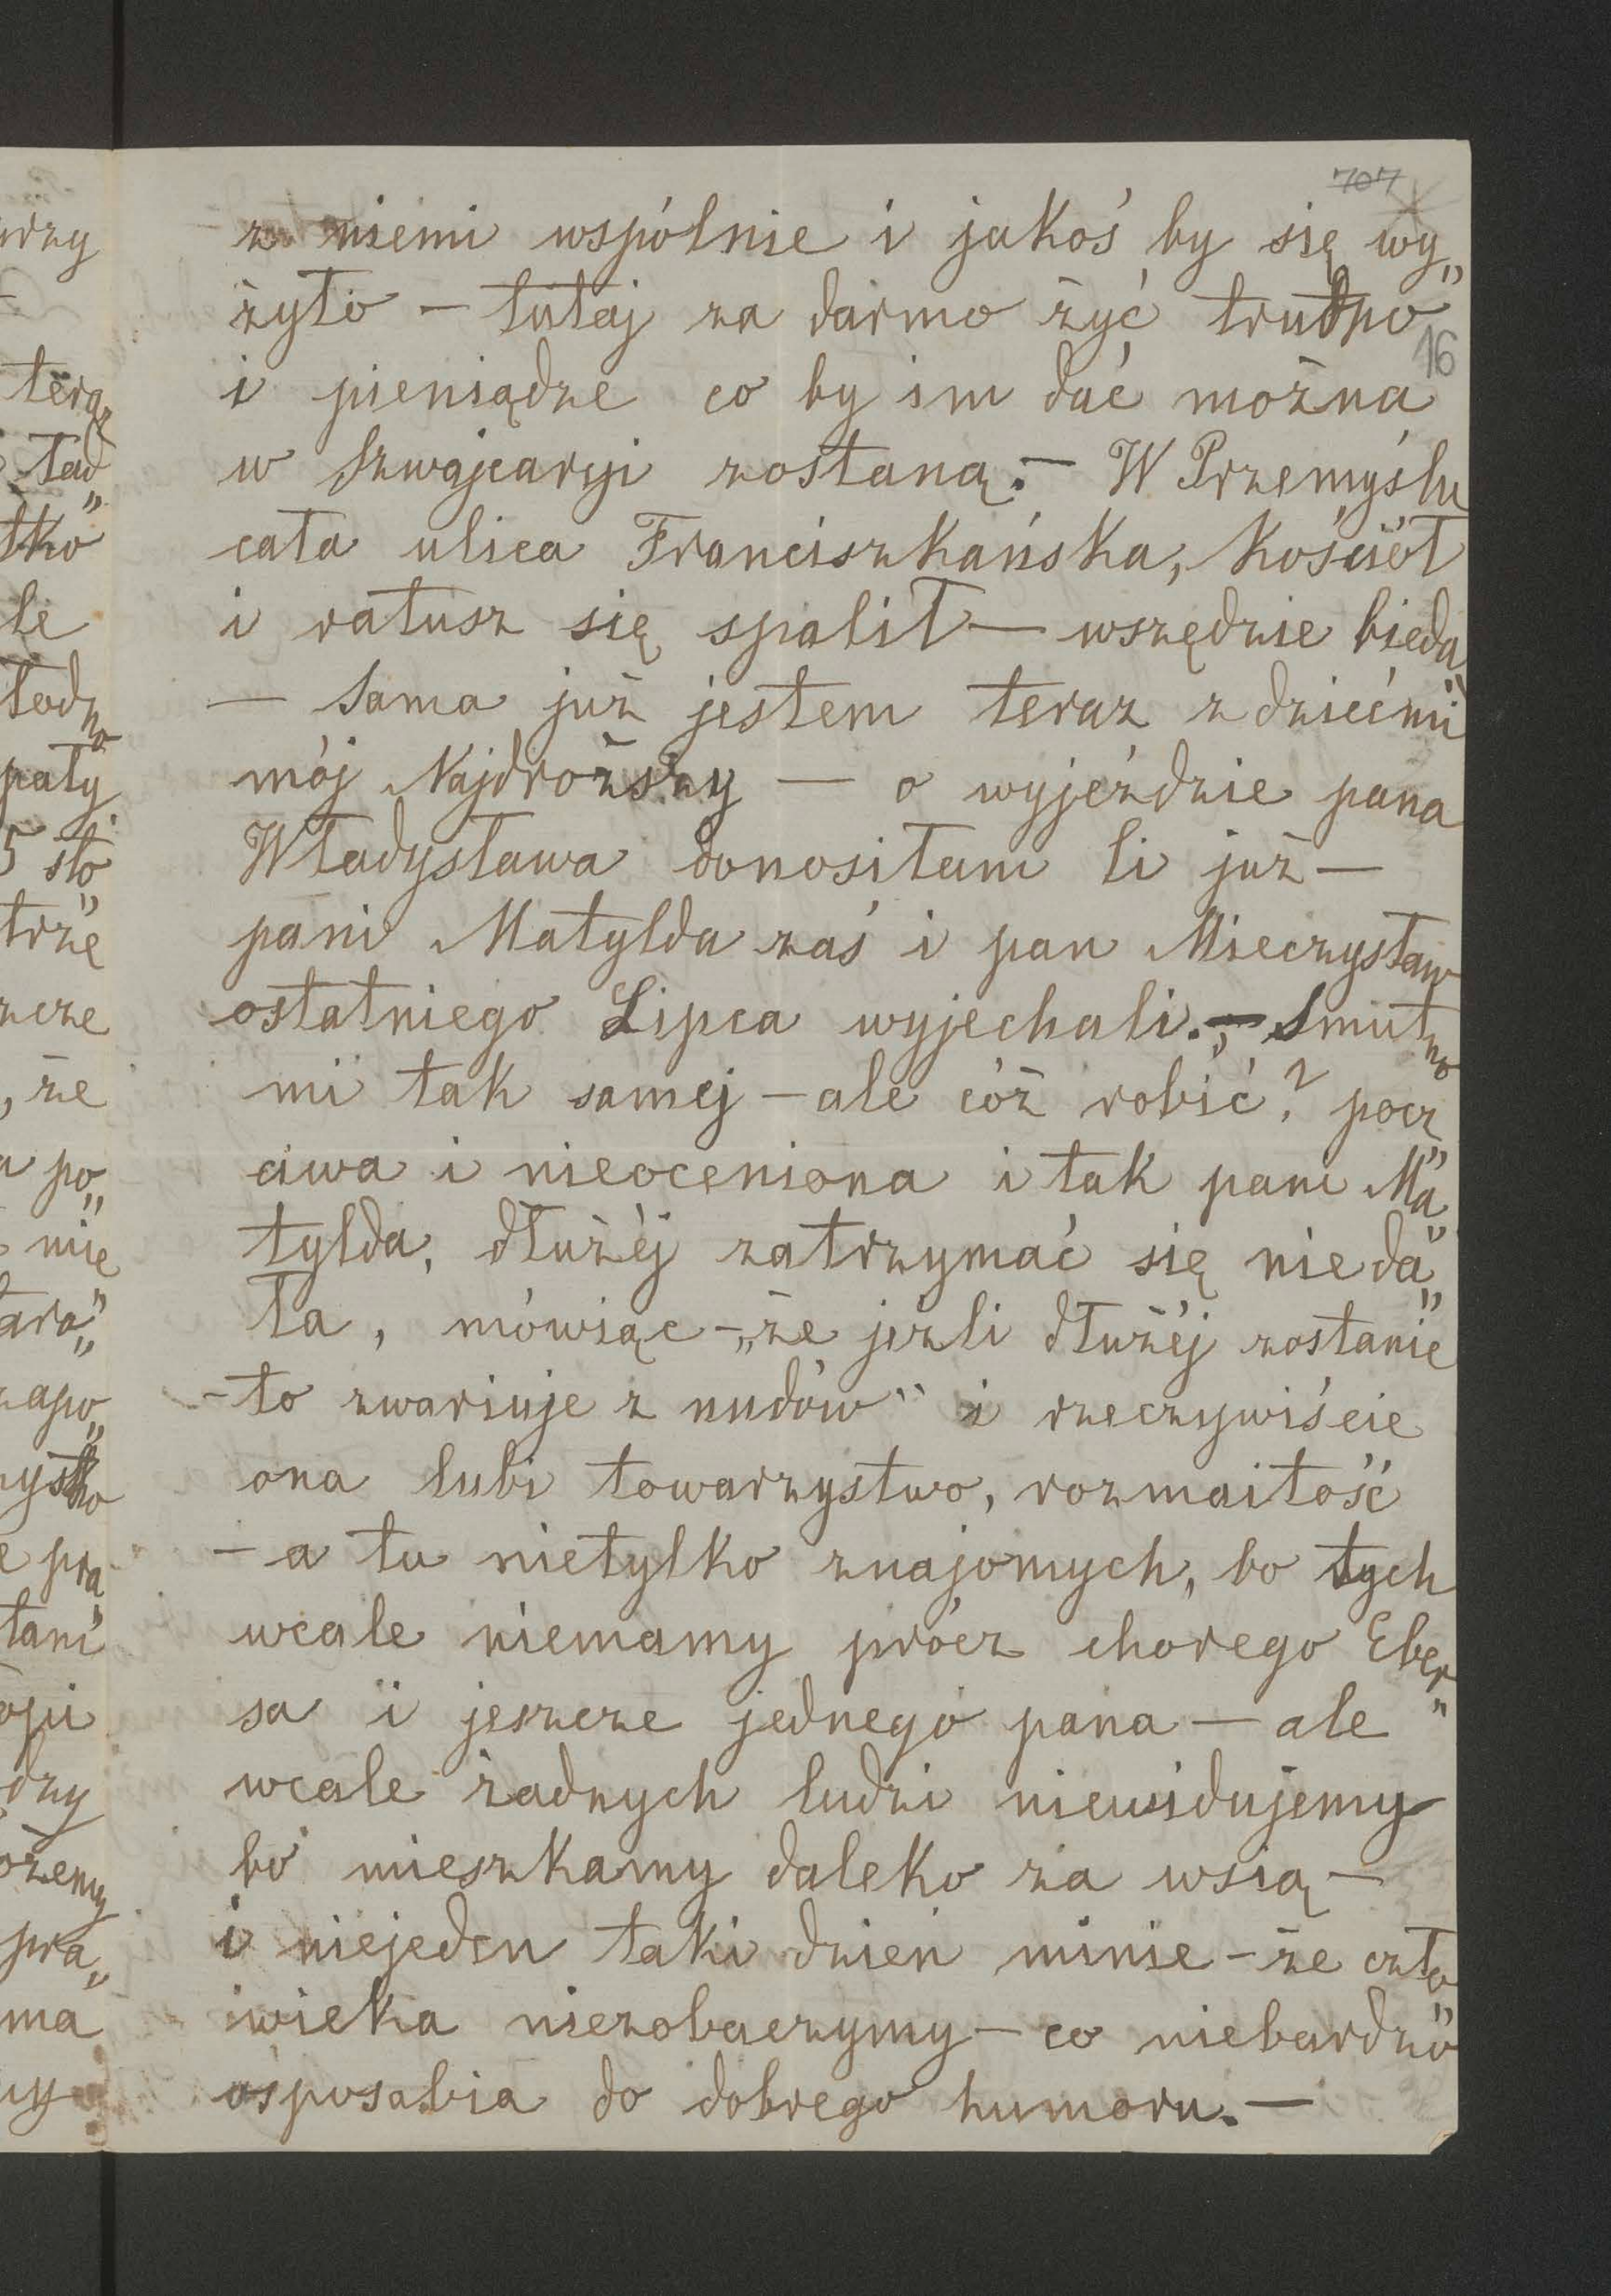 707
z niemi wspólnie i jakoś by się wy„
żyło – tutaj za darmo żyć trudno
16
i pieniądze co by im dać można
w Szwajcaryi zostaną. – W Przemyślu
cała ulica Franciszkańska, Kościół
i ratusz się spalił – wszędzie bieda
– Sama już jestem teraz z dziećmi
mój Najdroższy – o wyjeździe pana
Władysława donosiłam Ci już –
pani Matylda zaś i pan Mieczysław
ostatniego Lipca wyjechali. – Smutno
mi tak samej – ale cóż robić? pocz„
ciwa i nieoceniona i tak pani Ma„
tylda, dłużéj zatrzymać się nie da„
ła, mówiąc – „że jeźli dłużéj zostanie
– to zwariuje z nudów" i rzeczywiście
ona lubi towarzystwo, rozmaitość
– a tu nietylko znajomych, bo tych
wcale niemamy prócz chorego Eber„
sa i jeszcze jednego pana – ale
wcale żadnych ludzi niewidujemy
bo mieszkamy daleko za wsią –
i niejeden taki dzień minie – że czło„
wieka niezobaczymy – co niebardzo
usposabia do dobrego humoru. –